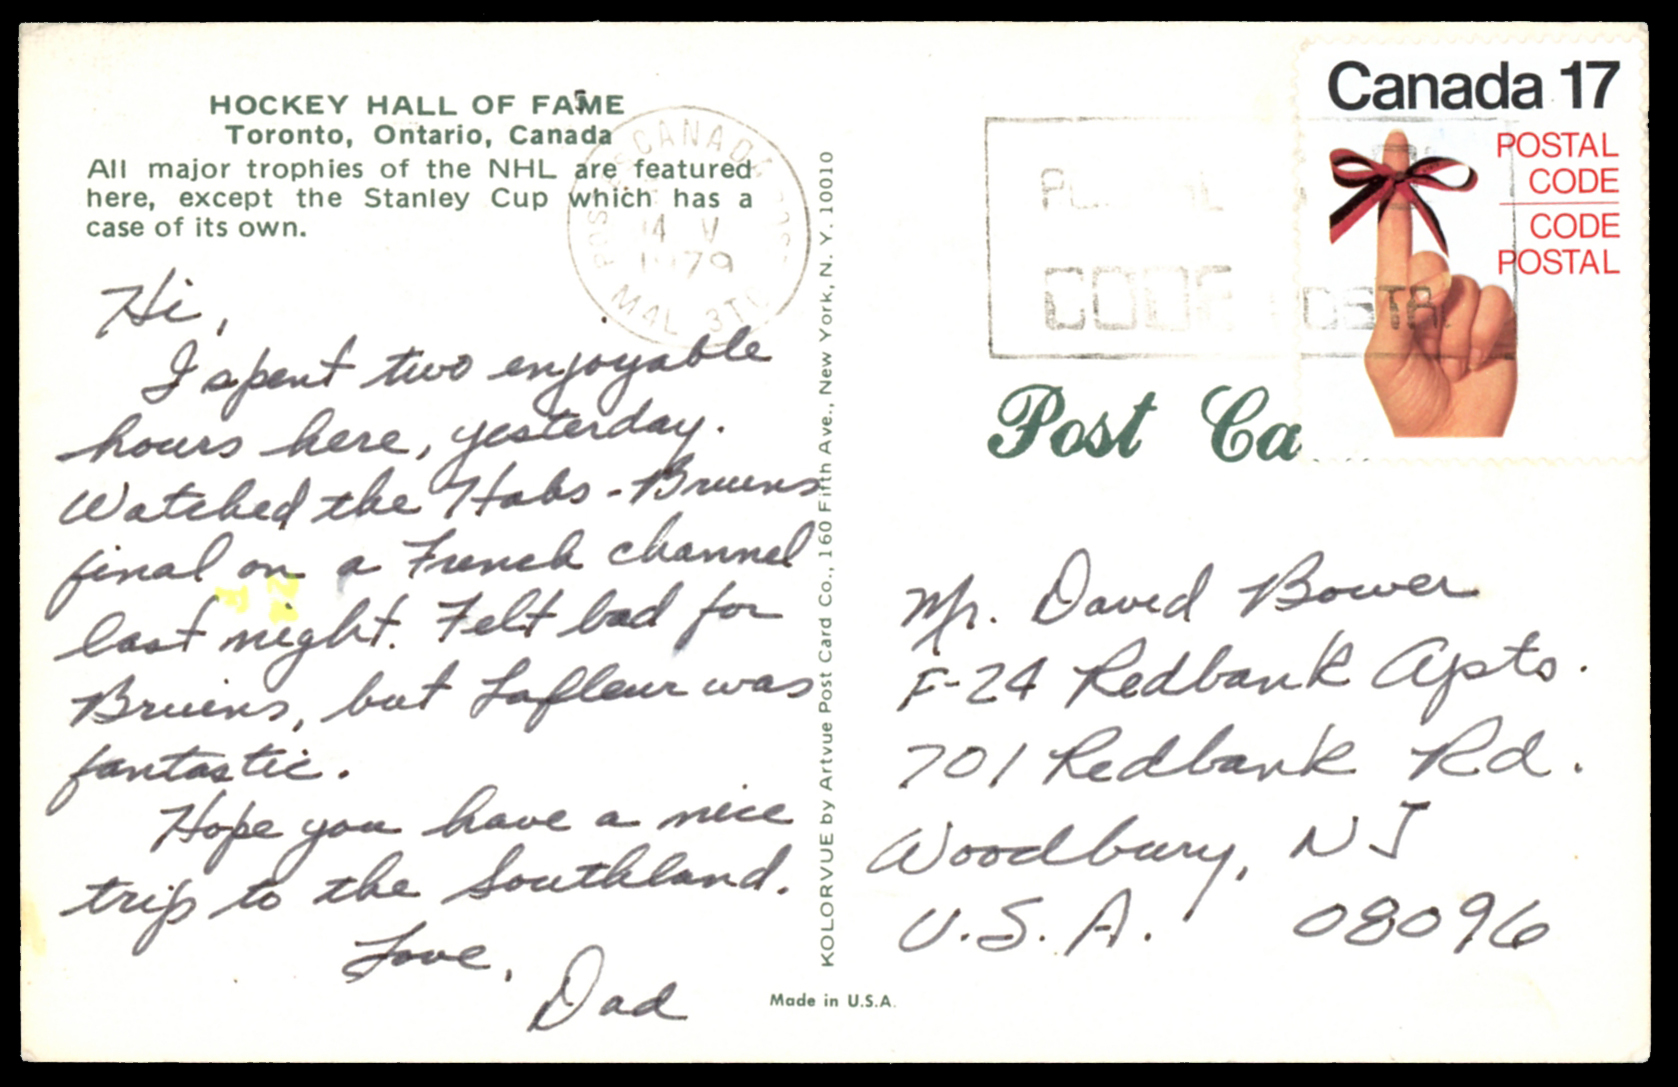 HOCKEY HALL OF FAME
Toronto, Ontario, Canada
All major trophies of the NHL are featured
here, except the Stanley Cup which has a
case of its own.
Hi,
I spent two enjoyable
hours here, yesterday.
Watched the Habs - Bruins
final on a French channel
last night. Felt bad for
Bruins, but Lafleur was
fantastic.
Hope you have a nice
trip to the Southland.
Love,
Dad
CANADA
14 V
1979
M4L 3T
KOLORVUE by Artvue Post Card Co., 160 Fifth Ave., New York, N. Y. 10010
Made in U.S.A.
Canada 17
POSTAL
CODE
CODE
POSTAL
CODE POSTA
Post Ca
Mr. David Bower
F-24 Redbank Apts.
701 Redbank Rd.
Woodbury, NJ
U.S.A. 08096